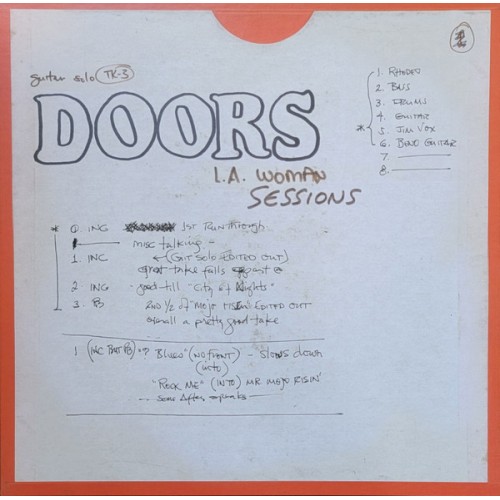 guitar solo TK-3
DOORS
L.A. WOMAN
SESSIONS
1. RHODES
2. BASS
3. DRUMS
4. GUITAR
* 5. JIM VOX
6. BEND GUITAR
7.
8.
* 0. INC 1st Run through
misc talking -
1. INC ← (GUIT SOLO EDITED OUT)
great take falls apart @
2. INC good till "City of Nights"
3. PB 2ND 1/2 of "MOJO RISEN" EDITED OUT
overall a pretty good take
1 (INC BUT PB) "? BLUES" (NO FRONT) - Slows down
(into)
"ROCK ME" (INTO) MR MOJO RISIN'
- Some After